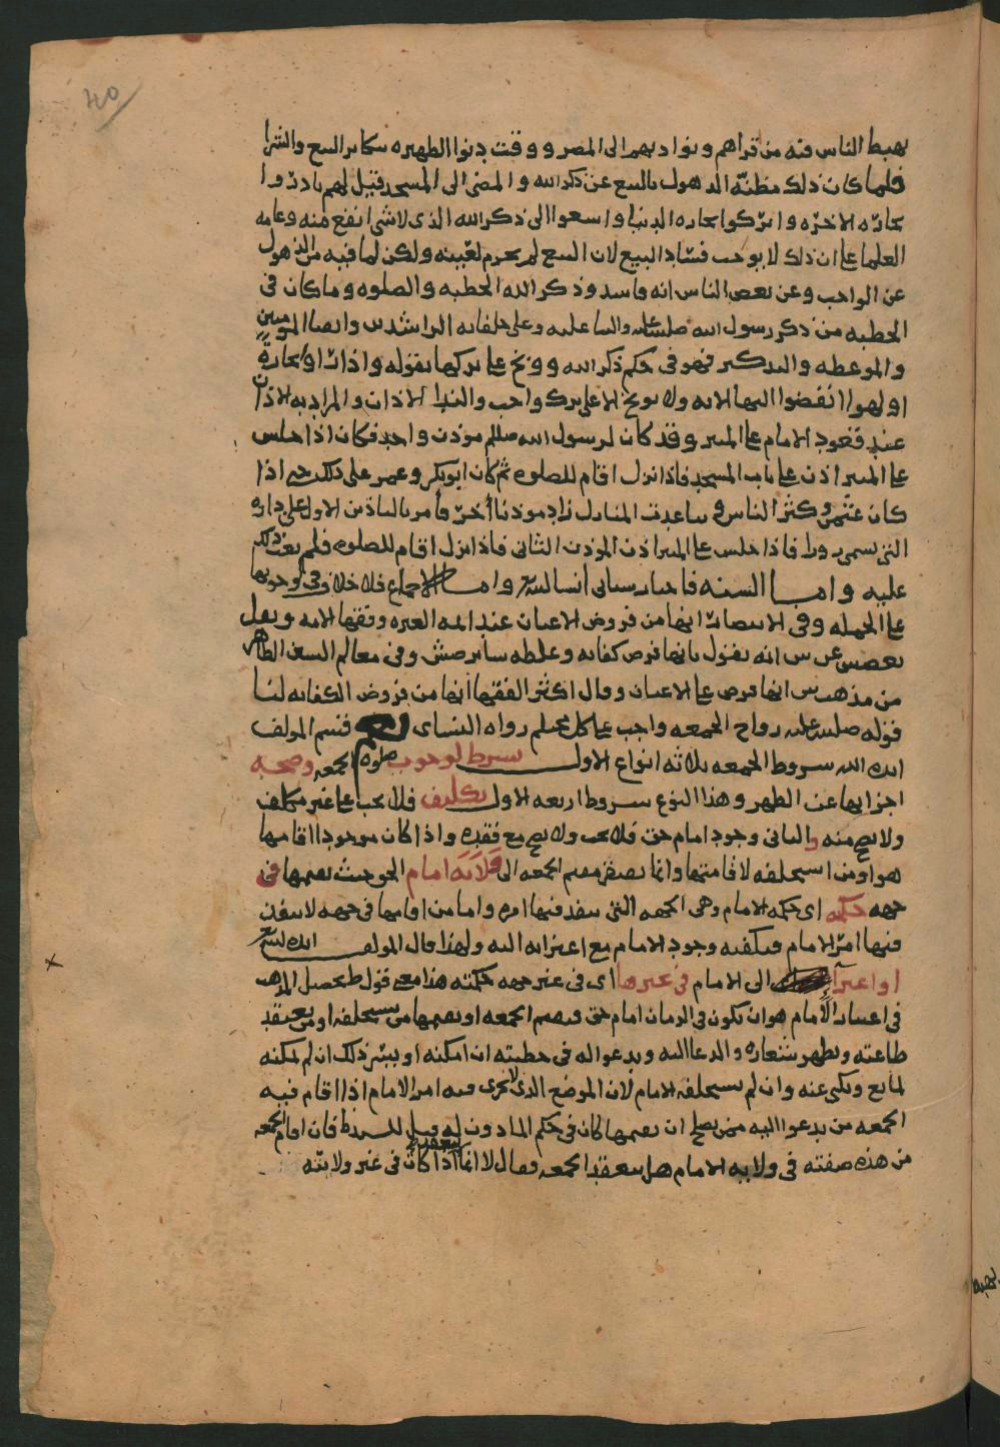 يهبط الناس فيه من قراهم وبواديهم الى المصر ووقت دنوا الظهيره يتكاثر البيع والشرا
فلما كان ذلك مظنّه الذهول بالبيع عن ذكر الله والمضى الى المسجد قيل لهم بادروا
تجارة الاخرة واتركوا تجاره الدنيا واسعوا الى ذكر الله الذى لا شى انفع منه وعامه
العلما على ان ذلك لا يوجب فساد البيع لان البيع لم يحرم لعينه ولكن لما فيه من الذهول
عن الواجب وعن بعض الناس انه فاسد وذكر الله الخطبه والصلوه وما كان فى
الخطبه من ذكر رسول الله صلى الله عليه والثنا عليه وعلى خلفائه الراشدين واتقيا المومنين
والموعظه والتذكير فهو فى حكم ذكر الله ووبخ على تركها بقوله واذا راوا تجارةً
او لهوا انفضوا اليها الايه ولا يوبخ الا على ترك واجب والندا الاذان والمراد به الاذان
عند قعود الامام على المنبر وقد كان لرسول الله صللم موذن واحد فكان اذا جلس
على المنبر اذن على باب المسجد فاذا نزل اقام للصلوه ثم كان ابو بكر وعمر على ذلك حتى اذا
كان عثمن وكثر الناس وتباعدت المنازل زاد موذنا اخر فامر بالتاذين الاول على داره
التى تسمى زورا فاذا جلس على المنبر اذن الموذن الثانى فاذا نزل اقام للصلوه فلم يعب ذلك
عليه واما السنه فاخبار ستاتى ان شا الله واما الاجماع فلا خلاف فى وجوبها
على الجمله وفى الانتصار انها من فروض الاعيان عند ايمه العتره وفقها الامه ونقل
بعض عن ش انه يقول بانها فرض كفايه وغلطه سائر صش وفى معالم السنن الظاهر
من مذهب ش انها فرض على الاعيان وقال اكثر الفقها انها من فروض الكفايه لنا
قوله صلى الله عليه رواح الجمعه واجب على كل محتلم رواه النساى قسم المولف
ايده الله شروط الجمعه ثلاثه انواع الاول شرط لوجوب صلوه الجمعه وصحه
اجزايها عن الظهر وهذا النوع شروط اربعه الاول تكليف فلا تجب على غير مكلف
ولا تصح منه والثانى وجود امام حق فلا تجب ولا تصح مع فقده واذا كان موجودا اقامها
هو او من استخلفه لاقامتها وانما يفتقر مقيم الجمعه الى ولايه امام الحق حيث يقيمها فى
جهه حكمه اى حكم الامام وهى الجهه التى ينفذ فيها امره واما من اقامها فى جهه لا ينفذ
فيها امر الامام فيكفيه وجود الامام مع اعتزايه اليه ولهذا قال المولف ايده الله
او اعتزآ الى الامام فى غيرها اى فى غير جهه حكمته هذا معنى قول ط تحصيل المذهب
فى اعتبار الامام هو ان يكون فى الزمان امام حق فيقيم الجمعه او يقيمها من يستخلفه او من يعتقد
طاعته ويظهر شعاره والدعا اليه ويدعوا له فى خطبته ان امكنه او يسر ذلك ان لم يمكنه
لمانع ويكنى عنه وان لم يستخلفه الامام لان الموضع الذى لا يجرى فيه امر الامام اذا اقام فيه
الجمعه من يدعوا اليه ممن يصلح ان يقيمها كان فى حكم الماذون له قيل للسيد ط فان اقام الجمعه
من هذه صفته فى ولايه الامام هل تنعقد الجمعه فقال لا انما تنعقد اذا كان فى غير ولايته